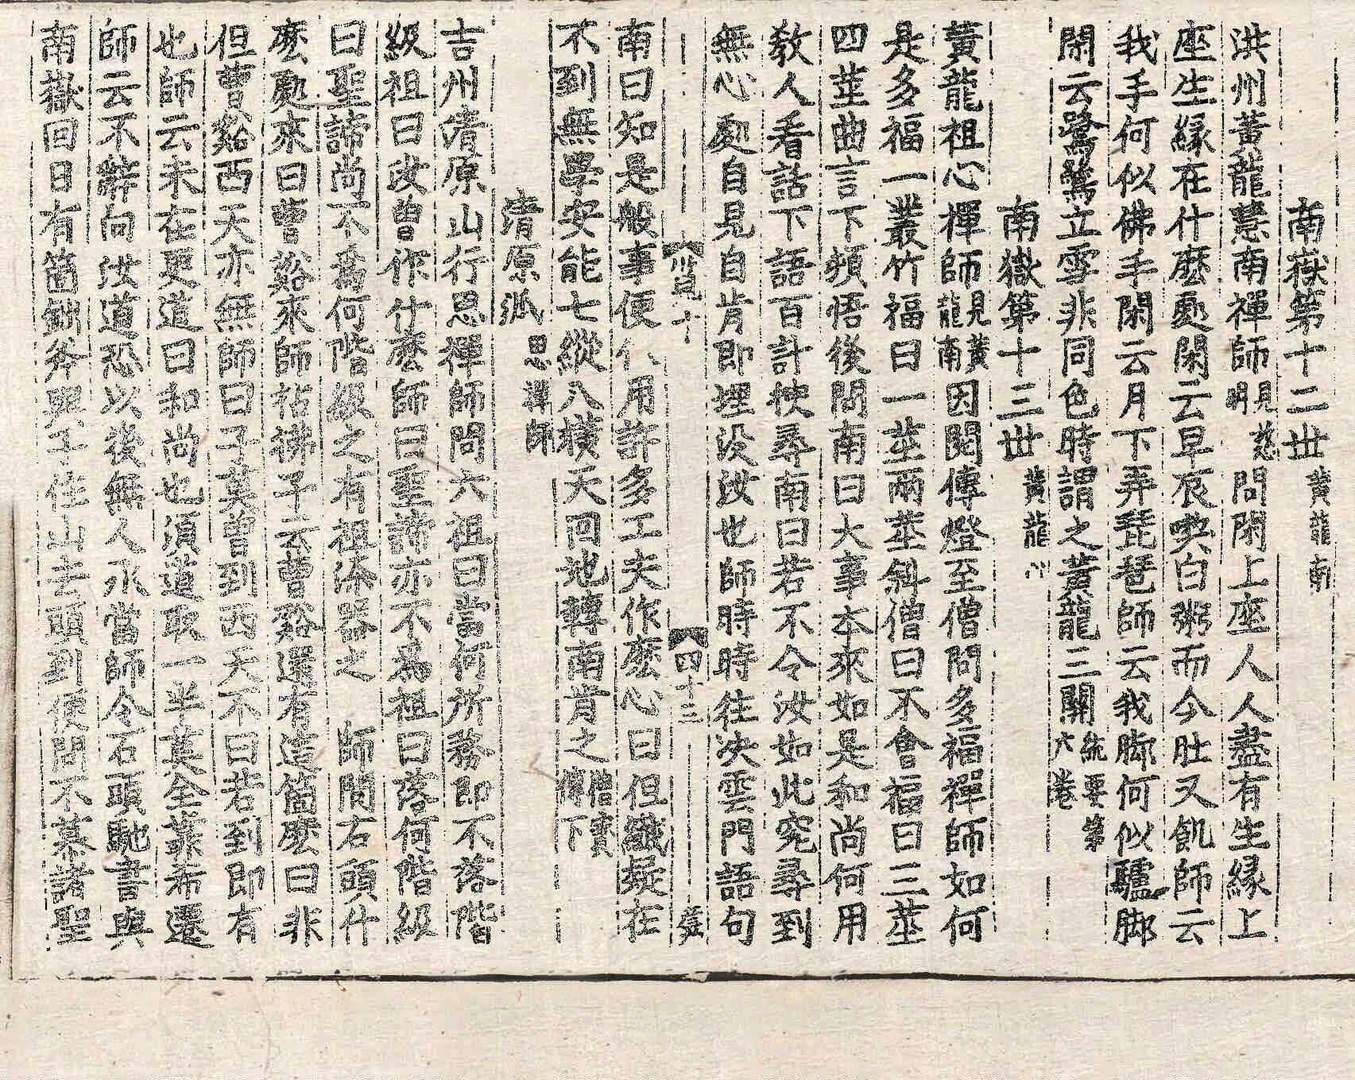 南嶽第十二世 黃龍南
洪州黃龍慧南禪師見慈明問閑上座人人盡有生緣上
座生緣在什麼處閑云早辰喫白粥而今肚又飢師云
我手何似佛手閑云月下弄琵琶師云我脚何似驢脚
閑云鷺鷥立雪非同色時謂之黃龍三關統要第六卷
南嶽第十三世 黃龍心
黃龍祖心禪師見黃龍南因閱傳燈至僧問多福禪師如何
是多福一叢竹福曰一莖兩莖斜僧曰不會福曰三莖
四莖曲言下頓悟後問南曰大事本來如是和尚何用
教人看話下語百計搜尋南曰若不令汝如此究尋到
無心處自見自肯即埋沒汝也師時時往決雲門語句
十 四十三
南曰知是般事便休用許多工夫作麼心曰但纖疑在
不到無學安能七縱八橫天回地轉南肯之僧寶傳下
清原派 思禪師
吉州清原山行思禪師問六祖曰當何所務即不落階
級祖曰汝曾作什麼師曰聖諦亦不為祖曰落何階級
曰聖諦尚不爲何階級之有祖深器之 師問石頭什
麼處來曰曹谿來師拈拂子云曹谿還有這箇麼曰非
但曹谿西天亦無師曰子莫曾到西天不曰若到即有
也師云未在更道曰和尚也須道取一半莫全靠希遷
師云不辭向汝道恐以後無人承當師令石頭馳書與
南嶽回日有箇鈯斧與子住山去頭到便問不慕諸聖